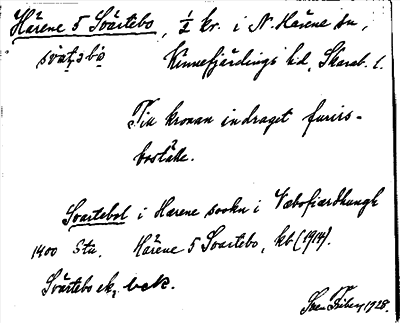 Härene 5 Svärtebo, ½ kr. i N. Härene sn,
svät,abo Kinnefjärdings hd, Skarab. l.
Till kronan indraget furirs-
boställe.
Svartebol i Hærene sookn i Væbofiærdhungh
1400 Stu. Härene 5 Svartebo, kb (1914).
Svärtebo ek, beck.
Sven Friberg 1928.